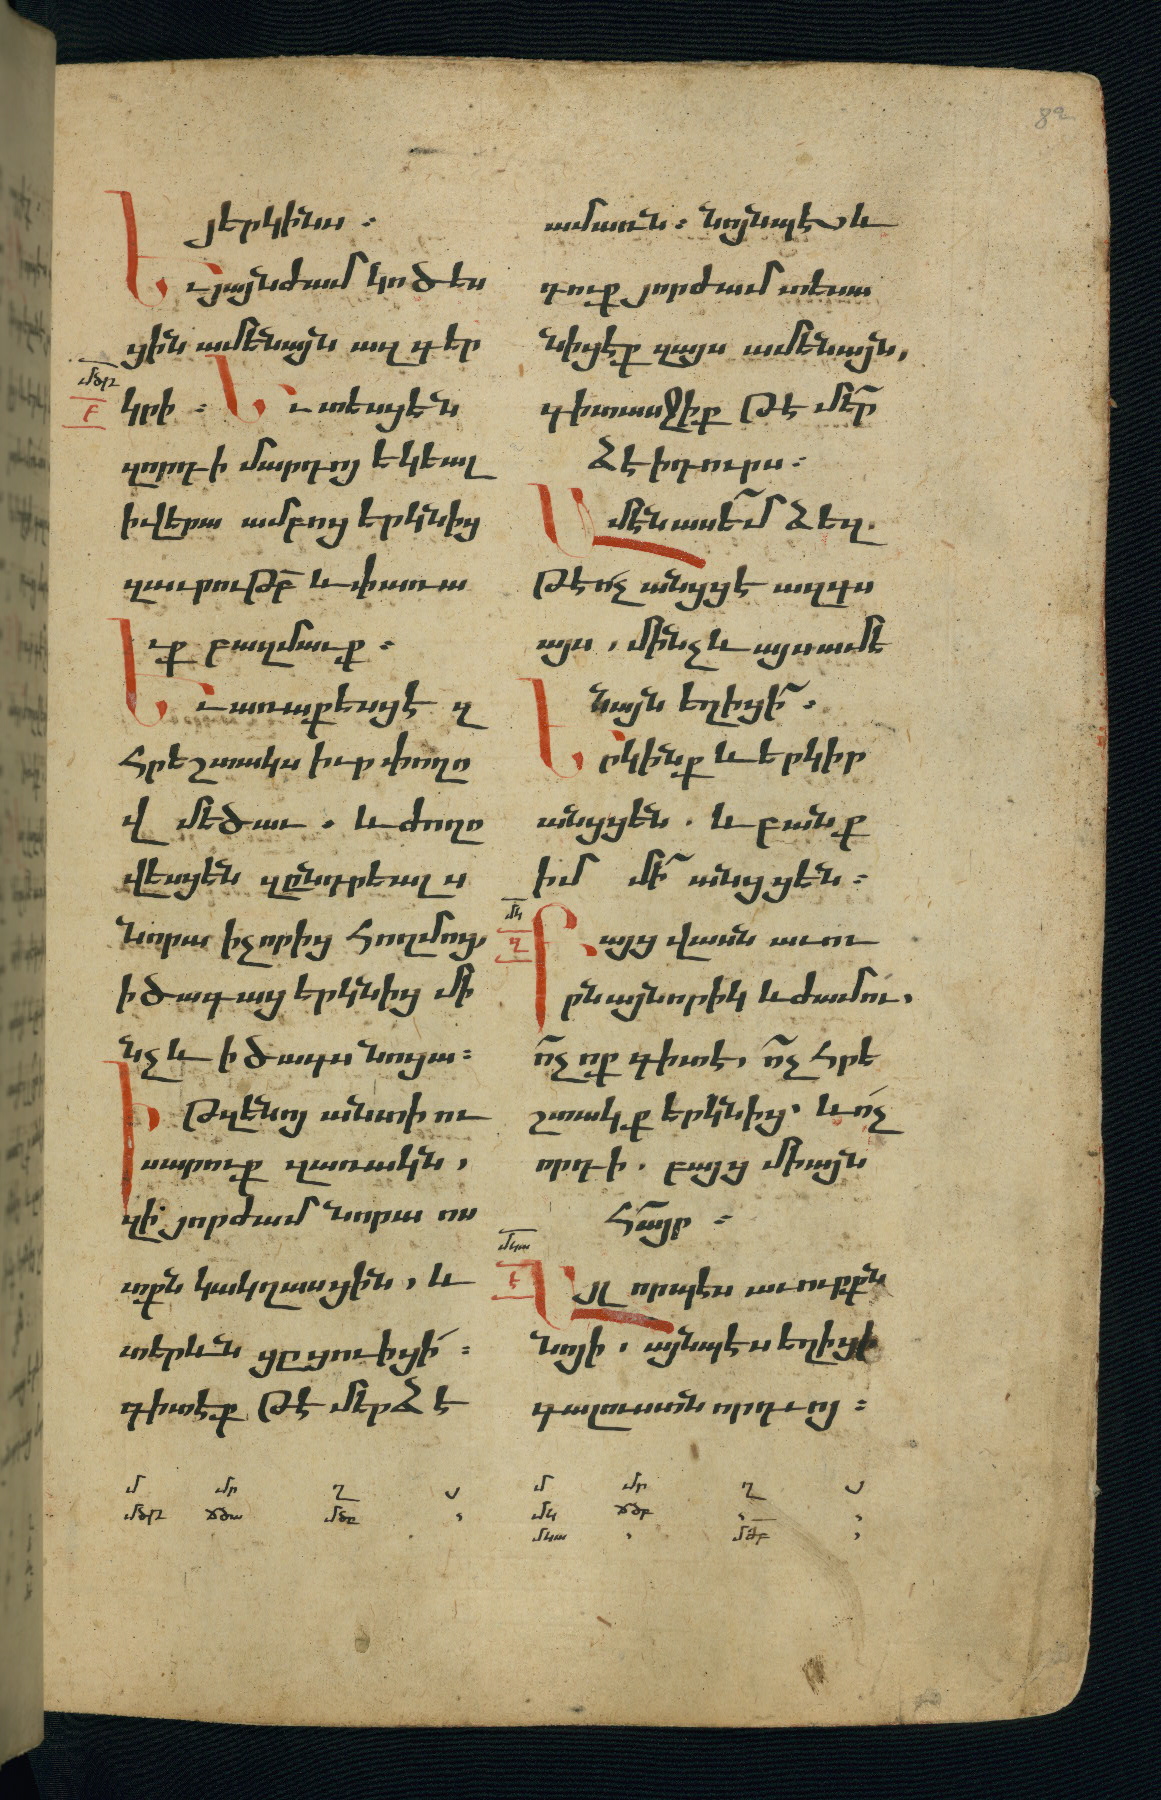 82
յերկինս ։
Եւ յայնժամ կոծես
ցին ամենայն ազգեր
մծթ
բ
կրի ։ Եւ տեսցեն
զորդի մարդոյ եկեալ
ի վերա ամբոց երկնից
զաւրութբ և փառա
ւք բազմաւք ։
Եւ առաքեսցէ զ
հրեշտակս իւր փողո
վ մեծաւ . և ժողո
վեսցեն զընտրեալս
նորա ի չորից հողմոց,
ի ծագաց երկնից մի
նչև ի ծագս նոցա ։
Ի թզենոյ անտի ու
սարուք զառակն ,
զի յորժամ նորա ոս
տքն կակղասցին , և
տերևն ցըցուիցի ։
գիտէք թէ մերձ է
ամառն ։ նոյնպէս և
դուք յորժամ տեսա
նիցէք զայս ամենայն,
գիտասջիք թէ մեր
ձ է ի դուրս ։
Ամէն ասեմ ձեզ .
թե ոչ անցցէ ազգս
այս , մինչև այս ամե
նայն եղիցի ։
Երկինք և երկիր
անցցեն . և բանք
իմ մի անցցեն ։
մկ
զ
Բայց վասն աւու
րն այնորիկ և ժամու ,
ոչ ոք գիտէ , ոչ հրե
շտակք երկնից , և ոչ
որդի . բայց միայն
հայր ։
մկա
է
Այլ որպէս աւուրքն
նոյի , այնպէս եղիցի
գալուստն որդւոյ ։